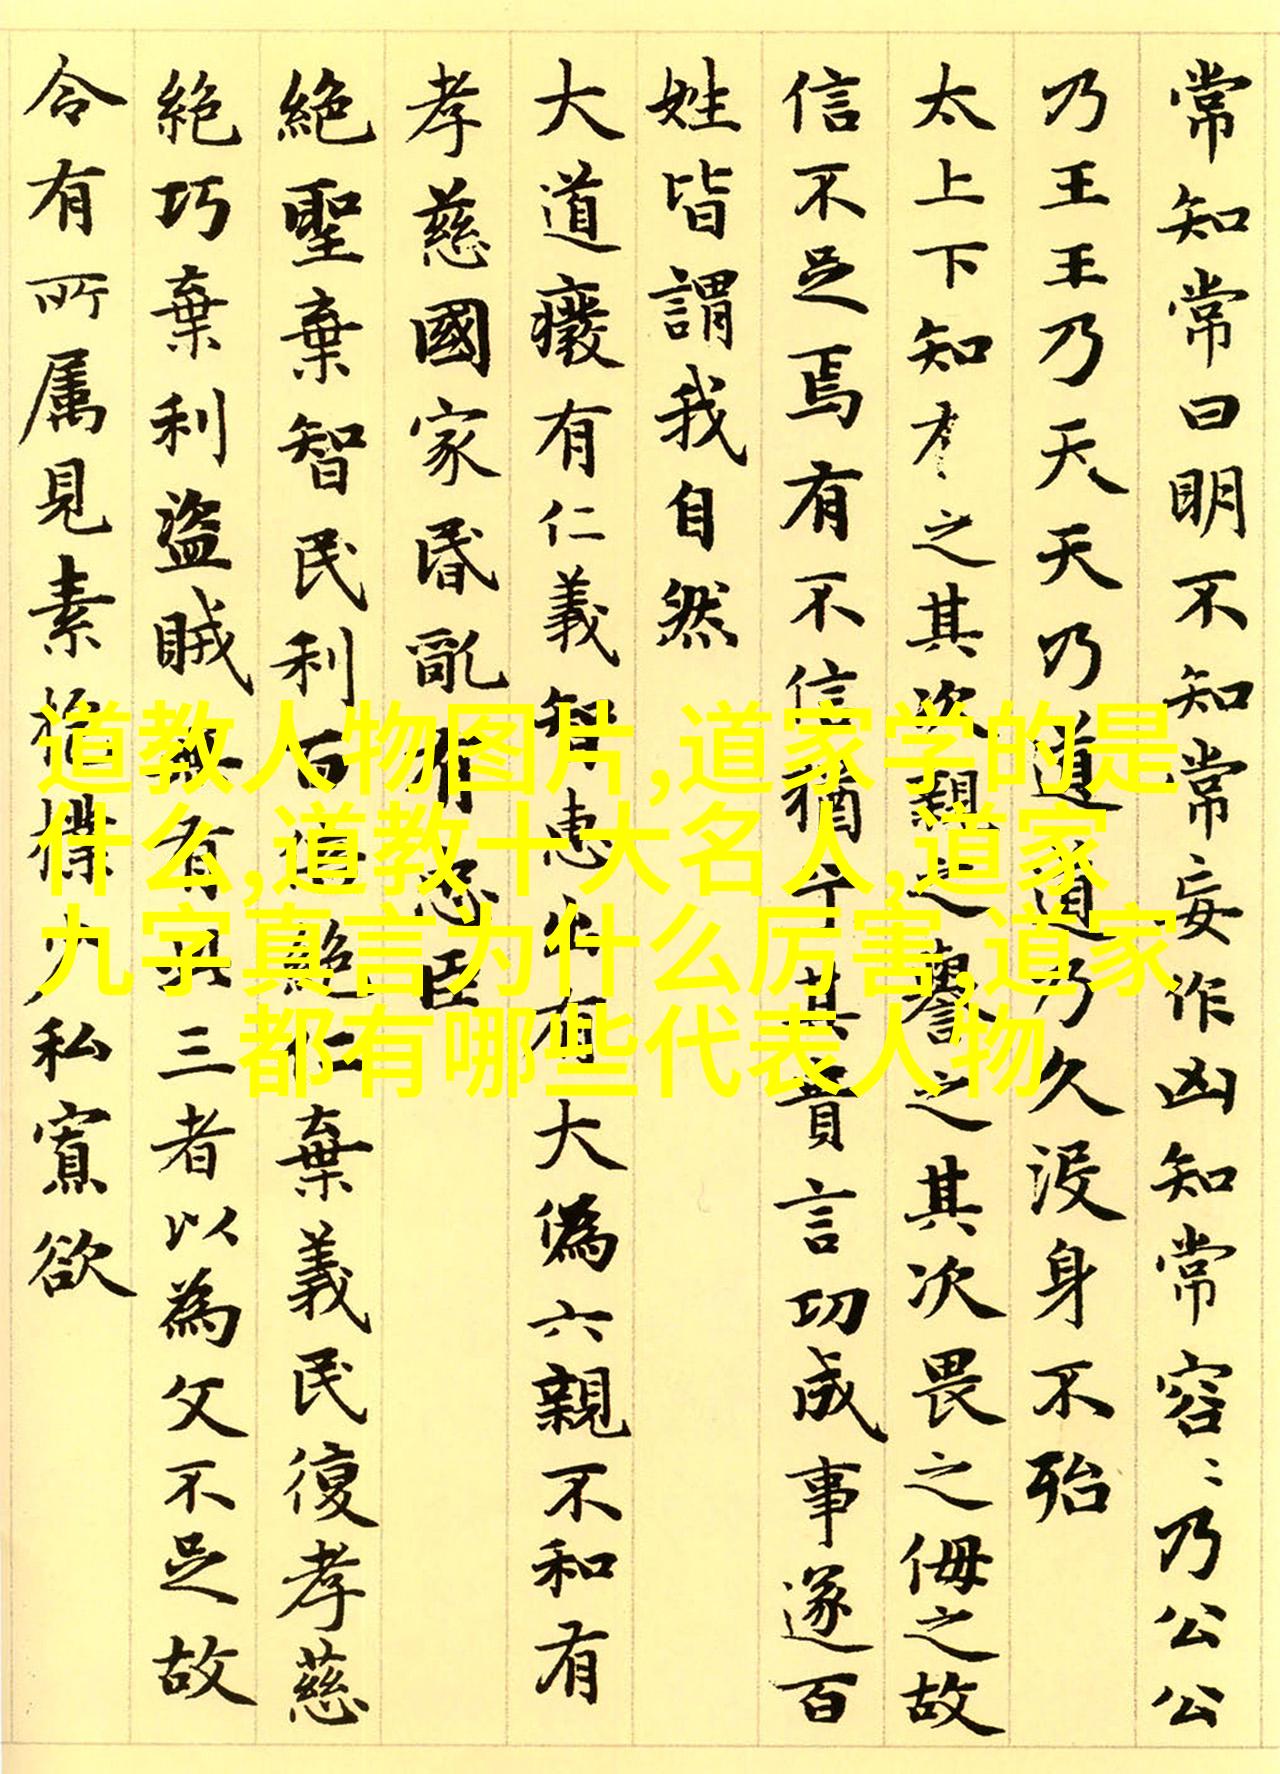 常知常曰明不知常妄作凶知常容〻乃公公
乃王王乃天天乃道道乃久沒身不殆
太上下知有之其次親之譽之其次畏之侮之故
信不足焉有不信猶兮其貴言功成事遂百
姓皆謂我自然
大道癈有仁義智惠出有大偽六親不和有
孝慈國家昬亂有忠臣
絶聖棄智民利百倍絶仁棄義民復孝慈
絶巧棄利盜賊無有此三者以為文不足故
令有所属見素抱樸少私寡欲
道教人物图片,道家学的是
什么,道教十大名人,道家
九字真言为什么厉害,道家
都有哪些代表人物